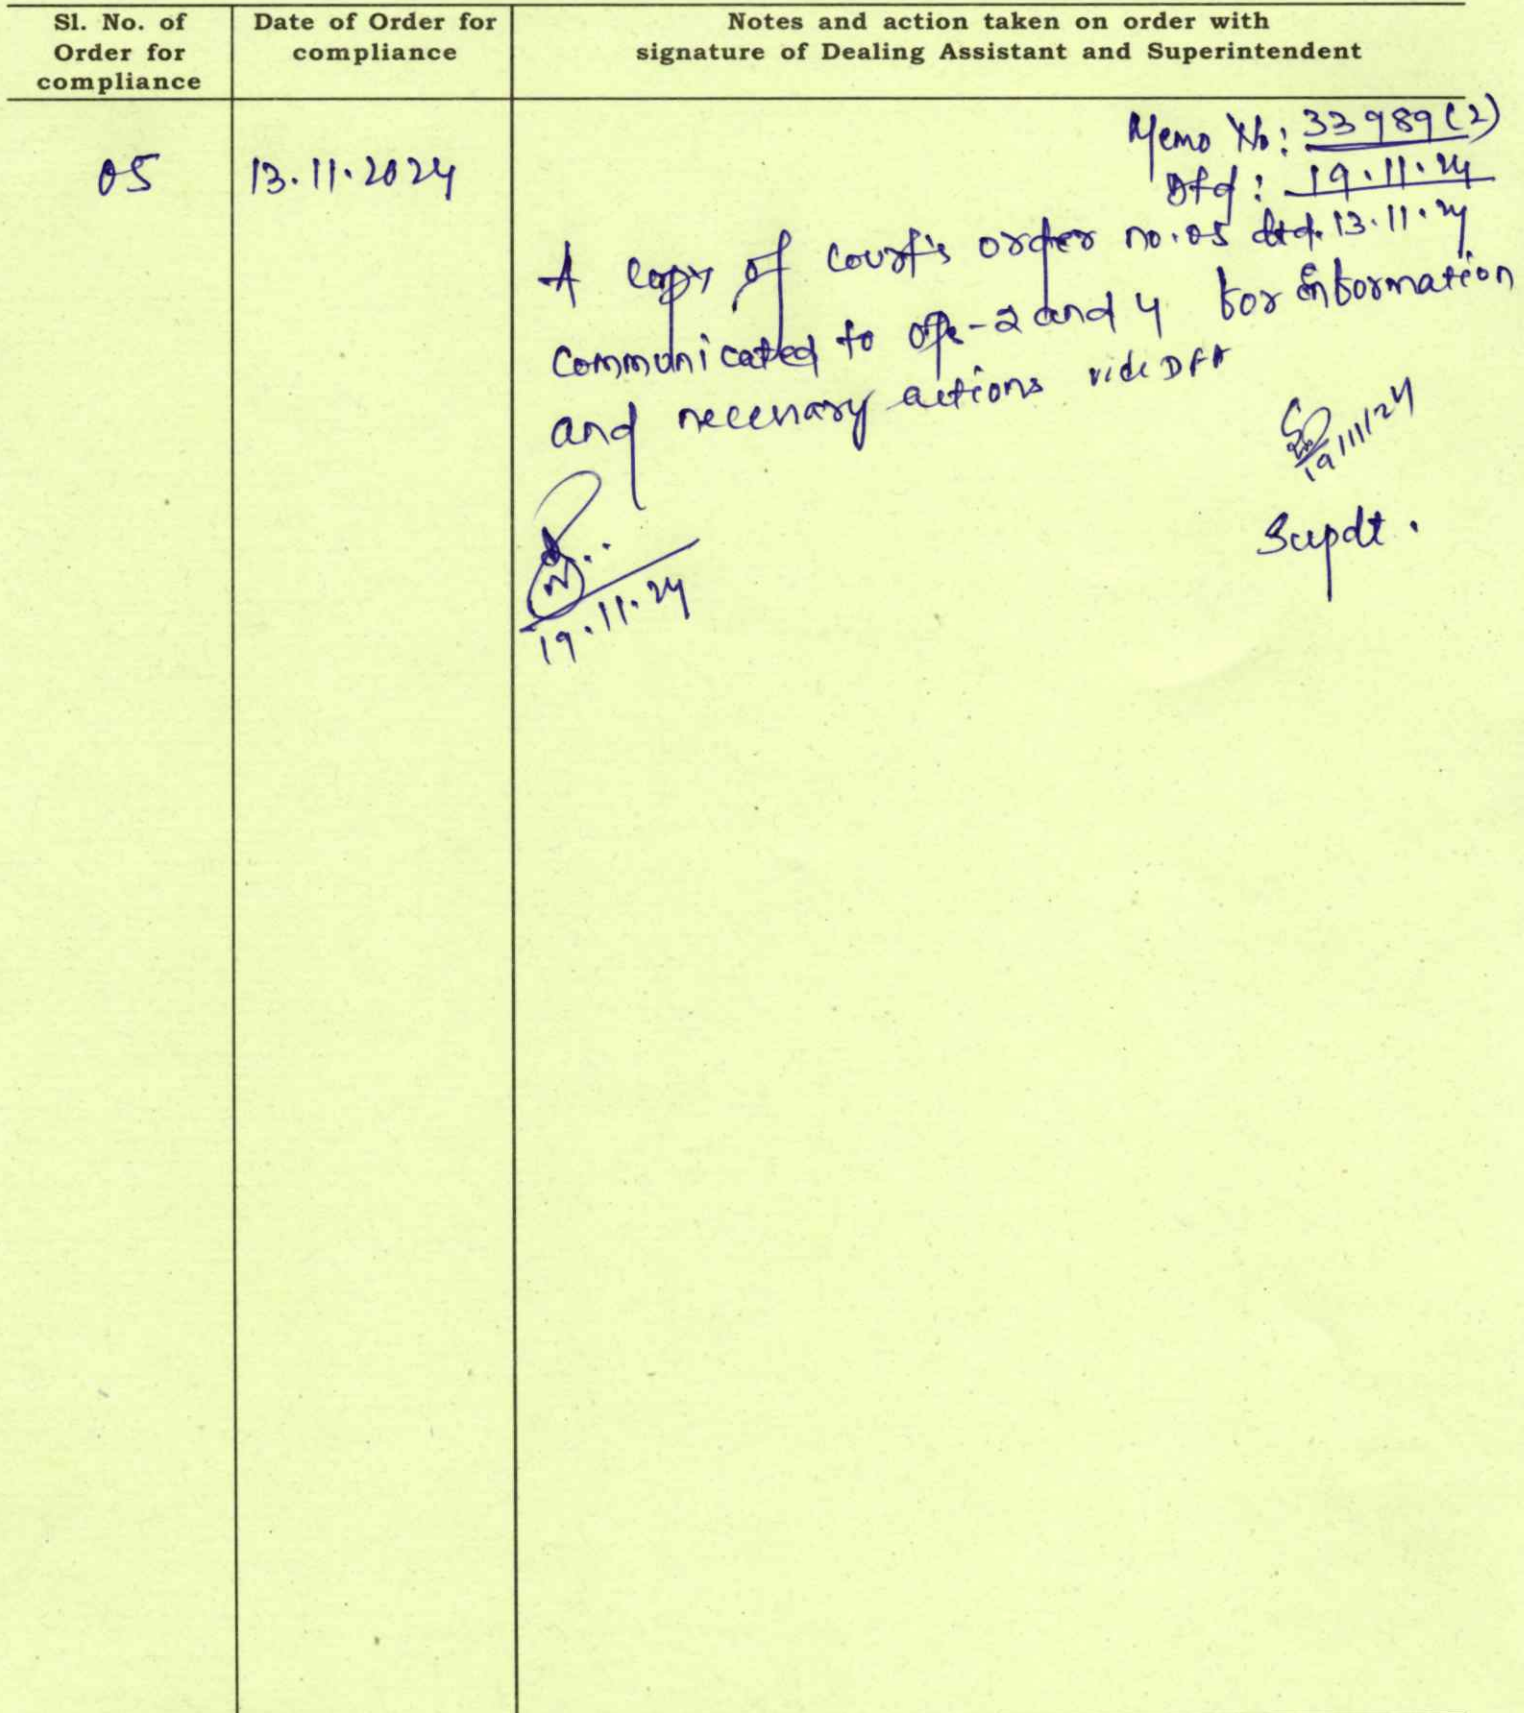 Sl. No. of
Order for
compliance
Date of Order for
compliance
Notes and action taken on order with
signature of Dealing Assistant and Superintendent
05
13.11.2024
Memo No: 33989(2)
Dtd: 19.11.24
A copy of court's order no.05 dtd. 13.11.24
communicated to -2 and 4 for information
and necessary actions vide DFA
19/11/24
Supdt.
19.11.24